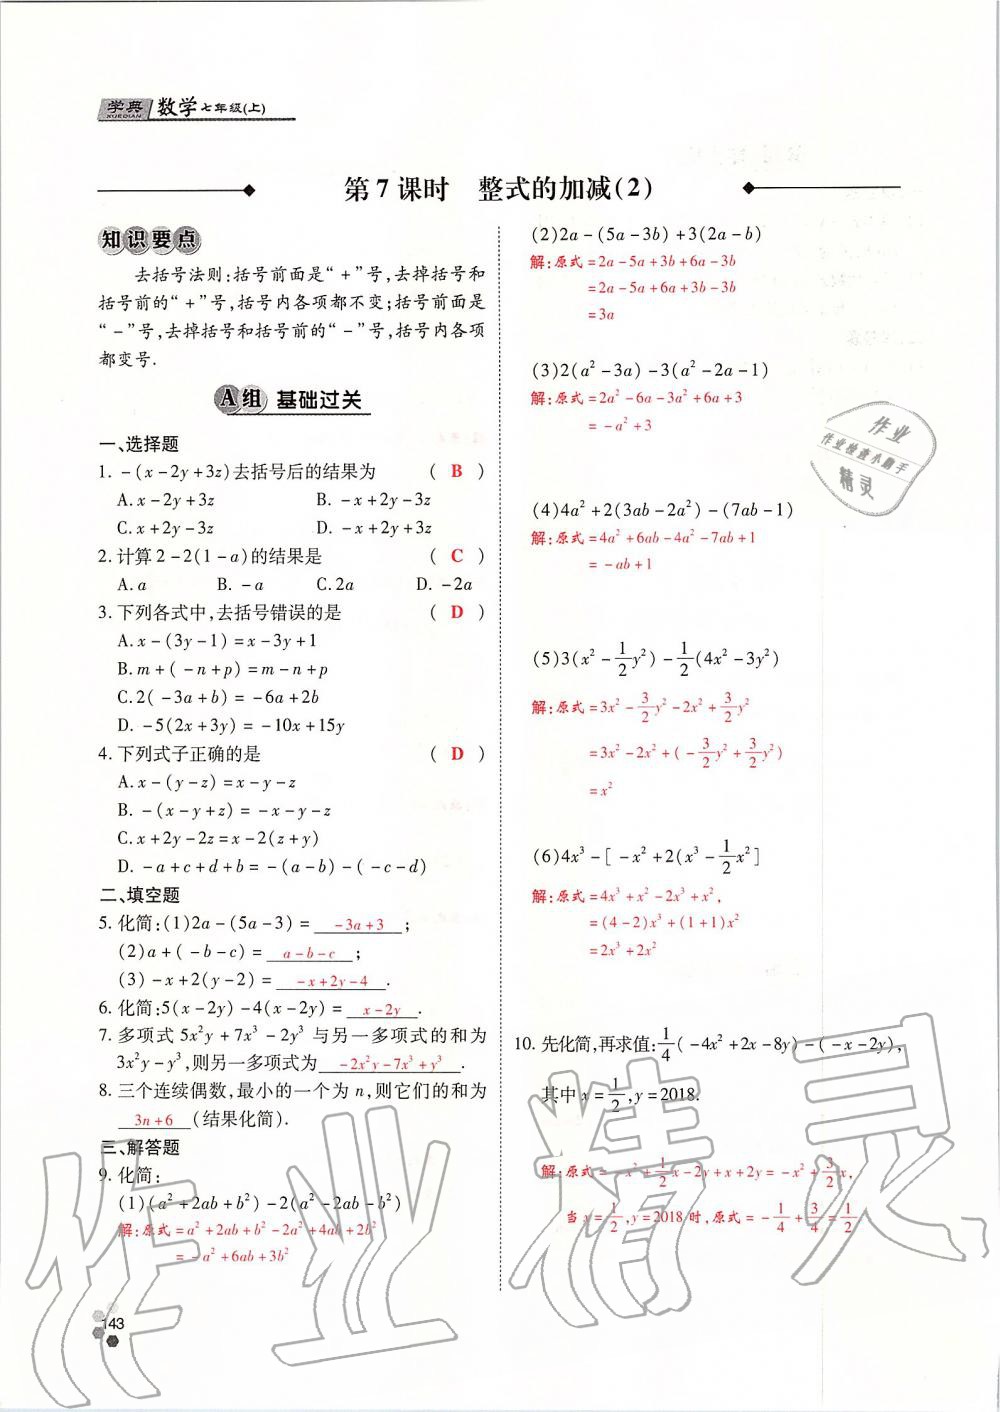 学典 XUEDIAN 数学七年级(上)
第7课时 整式的加减(2)
知识要点
去括号法则:括号前面是“+”号,去掉括号和
括号前的“+”号,括号内各项都不变;括号前面是
“-”号,去掉括号和括号前的“-”号,括号内各项
都变号.
A组 基础过关
一、选择题
1. -(x-2y+3z)去括号后的结果为 ( B )
A. x-2y+3z B. -x+2y-3z
C. x+2y-3z D. -x+2y+3z
2. 计算2-2(1-a)的结果是 ( C )
A. a B. -a C. 2a D. -2a
3. 下列各式中,去括号错误的是 ( D )
A. x-(3y-1)=x-3y+1
B. m+(-n+p)=m-n+p
C. 2(-3a+b)=-6a+2b
D. -5(2x+3y)=-10x+15y
4. 下列式子正确的是 ( D )
A. x-(y-z)=x-y-z
B. -(x-y+z)=-x-y-z
C. x+2y-2z=x-2(z+y)
D. -a+c+d+b=-(a-b)-(-c-d)
二、填空题
5. 化简:(1)2a-(5a-3)= -3a+3 ;
(2)a+(-b-c)= a-b-c ;
(3)-x+2(y-2)= -x+2y-4 .
6. 化简:5(x-2y)-4(x-2y)= x-2y .
7. 多项式 5x²y+7x³-2y³ 与另一多项式的和为
3x²y-y³,则另一多项式为 -2x²y-7x³+y³ .
8. 三个连续偶数,最小的一个为n,则它们的和为
3n+6 (结果化简).
三、解答题
9. 化简:
(1)(a²+2ab+b²)-2(a²-2ab-b²)
解:原式=a²+2ab+b²-2a²+4ab+2b²
=-a²+6ab+3b²
143
(2)2a-(5a-3b)+3(2a-b)
解:原式=2a-5a+3b+6a-3b
=2a-5a+6a+3b-3b
=3a
(3)2(a²-3a)-3(a²-2a-1)
解:原式=2a²-6a-3a²+6a+3
=-a²+3
(4)4a²+2(3ab-2a²)-(7ab-1)
解:原式=4a²+6ab-4a²-7ab+1
=-ab+1
(5)3(x²-1/2y²)-1/2(4x²-3y²)
解:原式=3x²-3/2y²-2x²+3/2y²
=3x²-2x²+(-3/2y²+3/2y²)
=x²
(6)4x³-[-x²+2(x³-1/2x²]
解:原式=4x³+x²-2x³+x²,
=(4-2)x³+(1+1)x²
=2x³+2x²
10. 先化简,再求值:1/4(-4x²+2x-8y)-(-x-2y),
其中x=1/2,y=2018.
解:原式=-x²+1/2x-2y+x+2y=-x²+3/2x,
当x=1/2,y=2018时,原式=-1/4+3/4=1/2
作业
作业检查小助手
精灵
作业精灵